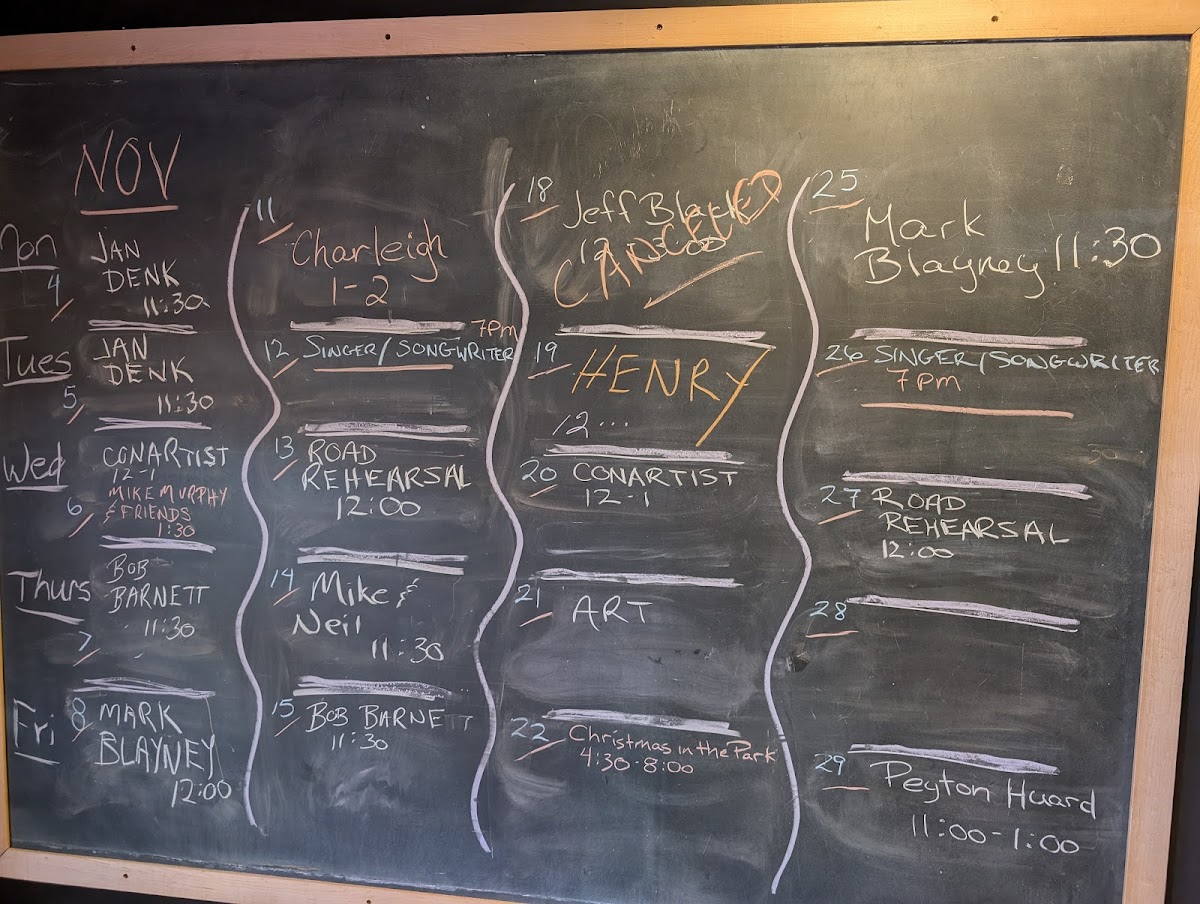 NOV
Mon
4
JAN
DENK
11:30
Tues
5
JAN
DENK
11:30
Wed
6
CONARTIST
12-1
MIKE MURPHY
& FRIENDS
1:30
Thurs
7
BOB
BARNETT
11:30
Fri
8 MARK
BLAYNEY
12:00
11
Charleigh
1-2
7pm
12 SINGER/SONGWRITER
13 ROAD
REHEARSAL
12:00
14 Mike &
Neil
11:30
15 BOB BARNETT
11:30
18
Jeff Black
CANCELLED
19
HENRY
12...
20 CONARTIST
12-1
21
ART
22 Christmas in the Park
4:30-8:00
25
Mark
Blayney 11:30
26 SINGER/SONGWRITER
7pm
27 ROAD
REHEARSAL
12:00
28
29 Peyton Huard
11:00-1:00